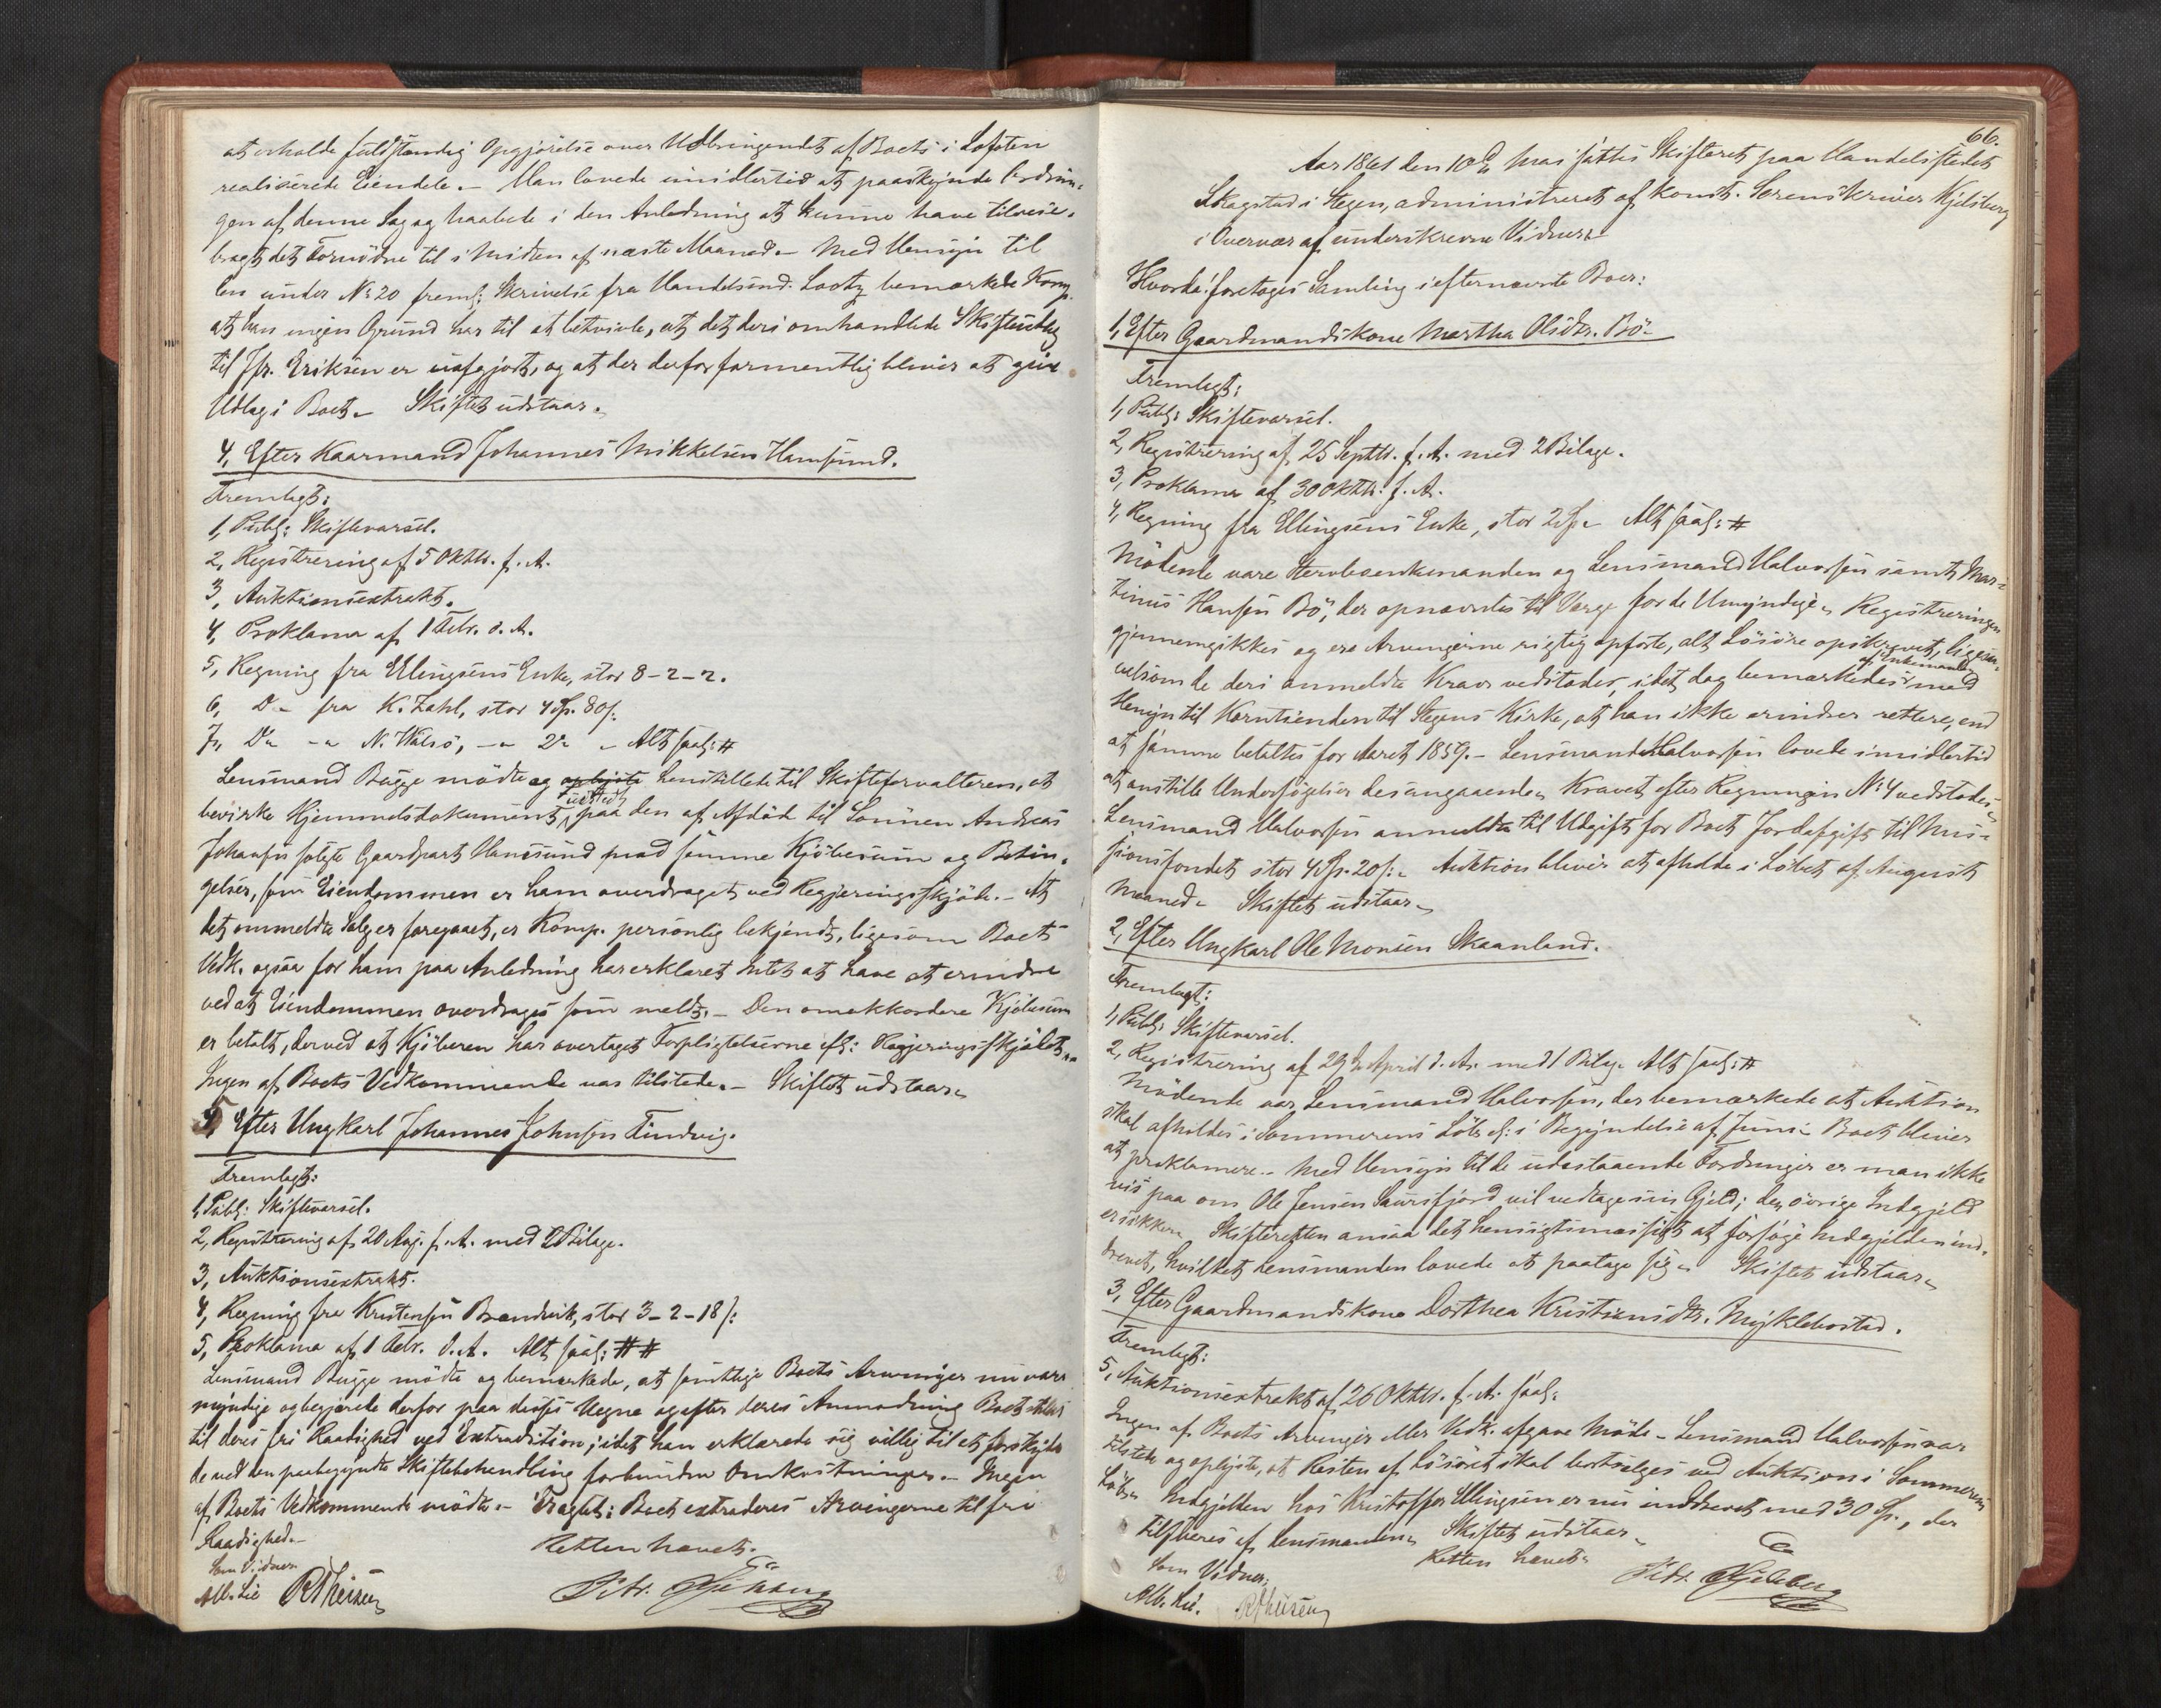 at erholde fuldstændig Opgjörelse over Udbringendet af Boets i Lofoten
realiserede Eiendele. - Man lovede imidlertid at paaskynde Ordnin-
gen af denne Sag og haabede i den Anledning at kunne have tilveie-
bragt det Fornödne til i Midten af næste Maaned. - Med Hensyn til
den under No 20 freml: Skrivelse fra Handelsmd. Lootz bemærkede Komp.
at han ingen Grund har til at betvivle, at det deri omhandlede Skifteudlæg
til Jfr. Eriksen er uafgjort, og at der derfor formentlig bliver at give
Udlæg i Boet. - Skiftet udstaar.
4, Efter Kaarmand Johannes Mikkelsen Hamsund.
Fremlagt:
1, Publ: Skiftevarsel.
2, Registrering af 5 Oktbr. f. A.
3, Auktionsextrakt.
4, Proklama af 1 Febr. d. A.
5, Regning fra Ellingsens Enke, stor 8-2-2.
6, Do fra K. Zahl, stor 4 Sp. 80 s:
7, Do - " N. Walsö, - " 2 " - Alt saal: #
Lensmand Bugge mödte og oplyste henstillede til Skifteforvalteren, at
udstedt
bevirke Hjemmelsdokument paa den af Afdöde til Sönnen Andreas
Johansen solgte Gaardpart Hamsund mod samme Kjöbesum og Betin-
gelser, som Eiendommen er ham overdraget ved Regjeringsskjöde. - At
det ommeldte Salg er foregaaet, er Komp. personlig bekjendt, ligesom Boets
Vedk. ogsaa for ham paa Anledning har erklæret Intet at have at erindre
ved at Eiendommen overdrages som meldt. - Den omakkordere Kjöbesum
er betalt, derved at Kjöberen har overtaget Forpligtelserne efl: Regjeringsskjödet. -
Ingen af Boets Vedkommende var tilstede. - Skiftet udstaar.
5, Efter Ungkarl Johannes Johnsen Tindvig.
Fremlagt:
1, Publ: Skiftevarsel.
2, Registrering af 20 Aug. f. A. med 2 Bilage.
3, Auktionsextrakt.
4, Regning fra Kristensen Brændvik, stor 3-2-18 s:
5, Proklama af 1 Febr. d. A. Alt saal: # #
Lensmand Bugge mödte og bemærkede, at samtlige Boets Arvinger nu vare
myndige og begjærede derfor paa disses Vegne og efter deres Anmodning Boet
til deres fri Raadighed ved Extradition; idet han erklærede sig villig til at forskyde
de ved den paabegyndte Skiftebehandling forbundne Omkostninger. - Ingen
af Boets Vedkommende mödte. - Eragtet: Boet extraderes Arvingerne til fri
Raadighed. -
Retten hævet.
Som Vidner
Alb. Lie RTheisen
Petr. Kjelsberg
66.
Aar 1861 den 10de Mai sattes Skifteret paa Handelsstedet
Skagstad i Stegen, administreret af konst. Sorenskriver Kjelsberg
i Overvær af underskrevne Vidner
Hvorda: foretoges Samling i efternævnte Boer:
1, Efter Gaardmandskone Martha Olsdtr. Bö.
Fremlagt:
1, Publ: Skiftevarsel.
2, Registrering af 25 Septbr. f. A. med 2 Bilage.
3, Proklama af 30 Oktbr. f. A.
4, Regning fra Ellingsens Enke, stor 2 Sp. - Alt saal: #
Mödende vare Stervboenkemanden og Lensmand Halvorsen samt Mar-
tinus Hansen Bö, der opnævntes til Værge for de Umyndige. Registreringen
gjennemgikkes og ere Arvingerne rigtig opförte, alt Lösöre opskrevet, ligesaa-
af Enkemanden
velsom de deri anmeldte Krav vedstodes, idet dog bemærkedes med
Hensyn til Korntienden til Stegens Kirke, at han ikke erindrer rettere, end
at samme betaltes for Aaret 1859. - Lensmand Halvorsen lovede imidlertid
at anstille Undersögelser desangaaende. Kravet efter Regningen No 4 vedstodes.
Lensmand Halvorsen anmeldte til Udgift for Boet Jordafgift til Mis-
sionsfondet stor 4 Sp. 20 s: - Auktion bliver at afholde i Löbet af August
Maaned. Skiftet udstaar.
2, Efter Ungkarl Ole Monsen Skaanland.
Fremlagt:
1, Publ: Skiftevarsel.
2, Registrering af 29de April d. A. med 1 Bilag. Alt saal: #
Mödende var Lensmand Halvorsen, der bemærkede at Auktion
skal afholdes i Sommerens Löb el: i Begyndelse af Juni. Boet bliver
at proklamere. - Med Hensyn til de udestaaende Fordringer er man ikke
vis paa om Ole Jensen Saursfjord vil vedtage sin Gjeld; den övrige Indgjeld
er sikker. Skifteretten ansaa det hensigtsmæssigt at forsöge Indgjelden ind-
drevet, hvilket Lensmanden lovede at paatage sig. Skiftet udstaar.
3, Efter Gaardmandskone Dorthea Kristiansdtr. Myklebostad.
Fremlagt:
5, Auktionsextrakt af 26 Oktbr. f. A. saal:
Ingen af Boets Arvinger eller Vedk. afgave Möde. - Lensmand Halvorsen var
tilstede og oplyste, at Resten af Lösöret skal bortsælges ved Auktion i Sommerens
Löb. Indgjelden hos Kristoffer Ellingsen er nu inddrevet med 30 Sp., der
tilsvares af Lensmanden. Skiftet udstaar.
Retten hævet.
Som Vidner:
Alb. Lie. RTheisen
Petr. Kjelsberg